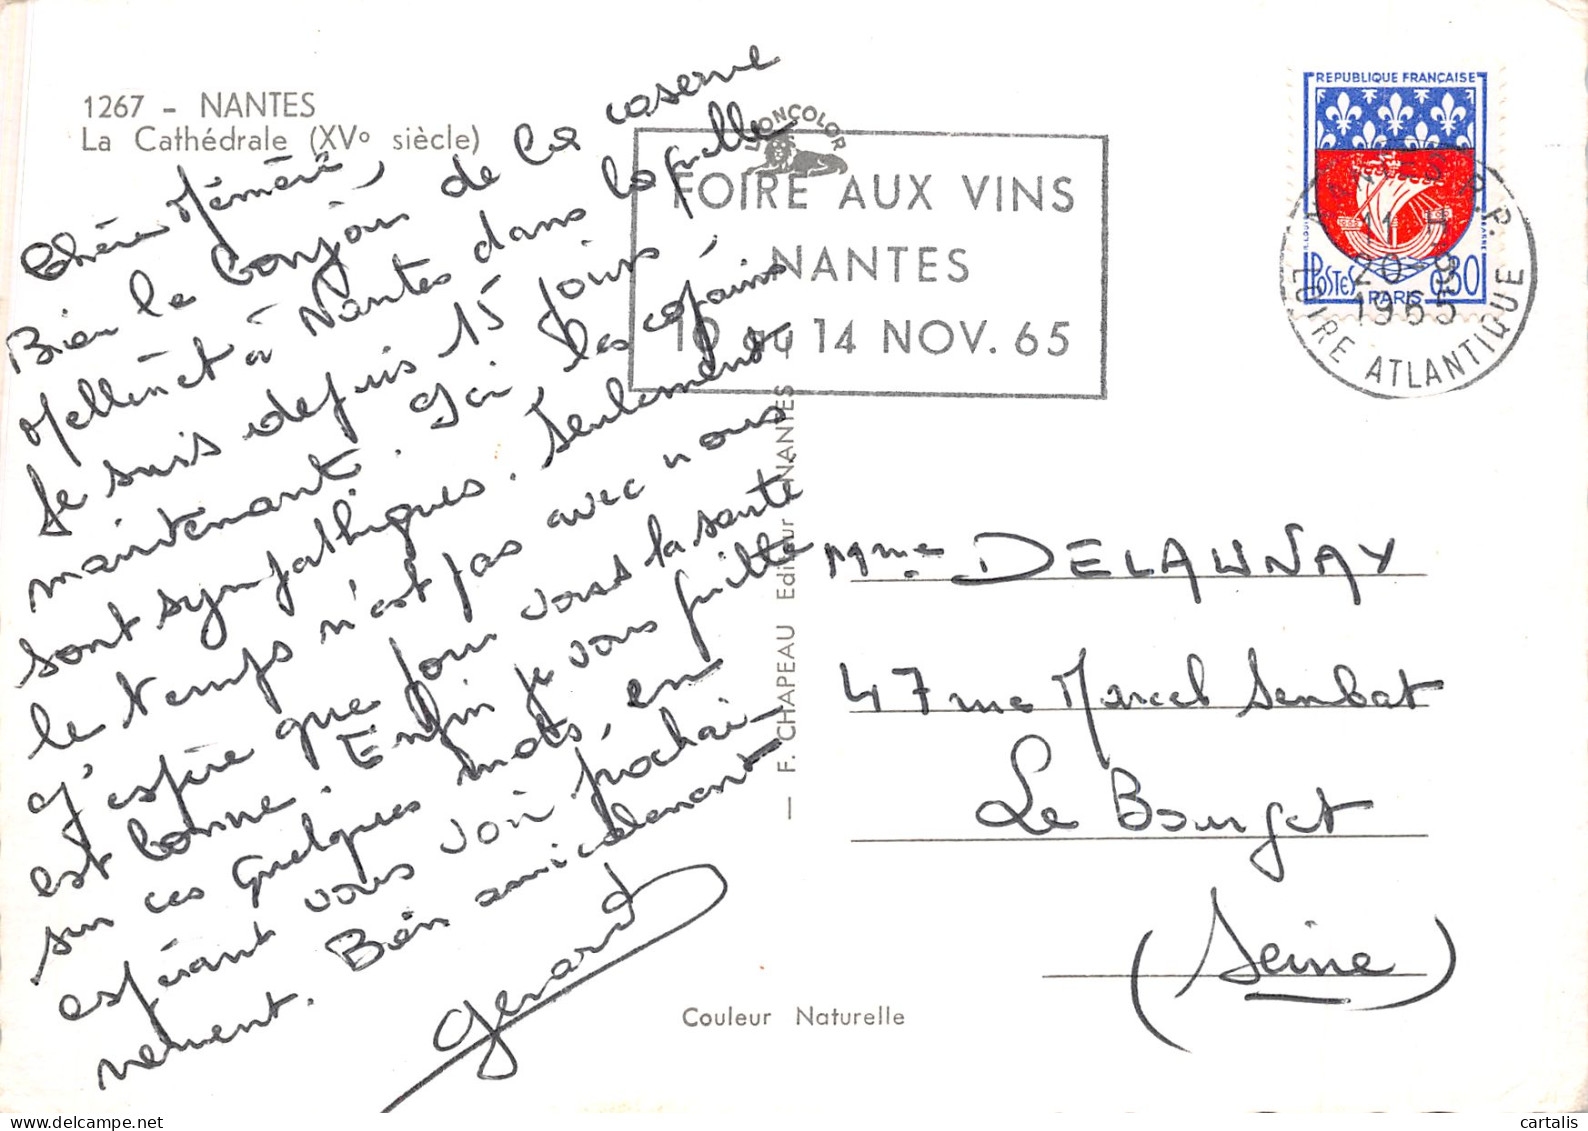 1267 - NANTES
La Cathédrale (XVº siècle)
Chère Mémère,
Bien le bonjour de la caserne
Mellinet à Nantes dans laquelle
Je suis depuis 15 jours
maintenant. Ici, les copains
sont sympathiques. Seulement
le temps n'est pas avec nous
J'espère que pour vous la santé
est bonne. Enfin je vous quitte
sur ces quelques mots, en
espérant vous voir prochai-
nement. Bien amicalement
Gérard
LIONCOLOR
FOIRE AUX VINS
NANTES
10 au 14 NOV. 65
F. CHAPEAU Editeur NANTES
Couleur Naturelle
REPUBLIQUE FRANÇAISE
POSTES 0,30
PARIS
NANTES R.P.
20-9
1965
LOIRE ATLANTIQUE
Mme DELAUNAY
47 rue Marcel Sembat
Le Bourget
(Seine)
cartalis